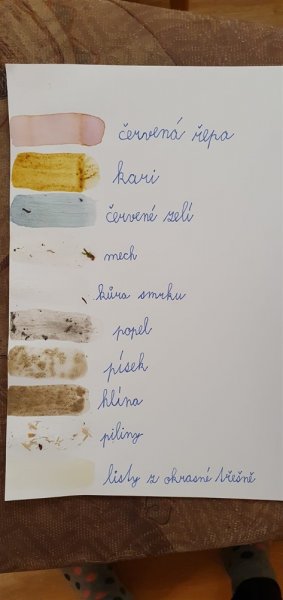 červená řepa
kari
červené zelí
mech
kůra smrku
popel
písek
hlína
piliny
listy z okrasné třešně